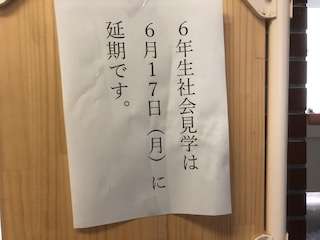 6年生社会見学は
6月17日(月)に
延期です。